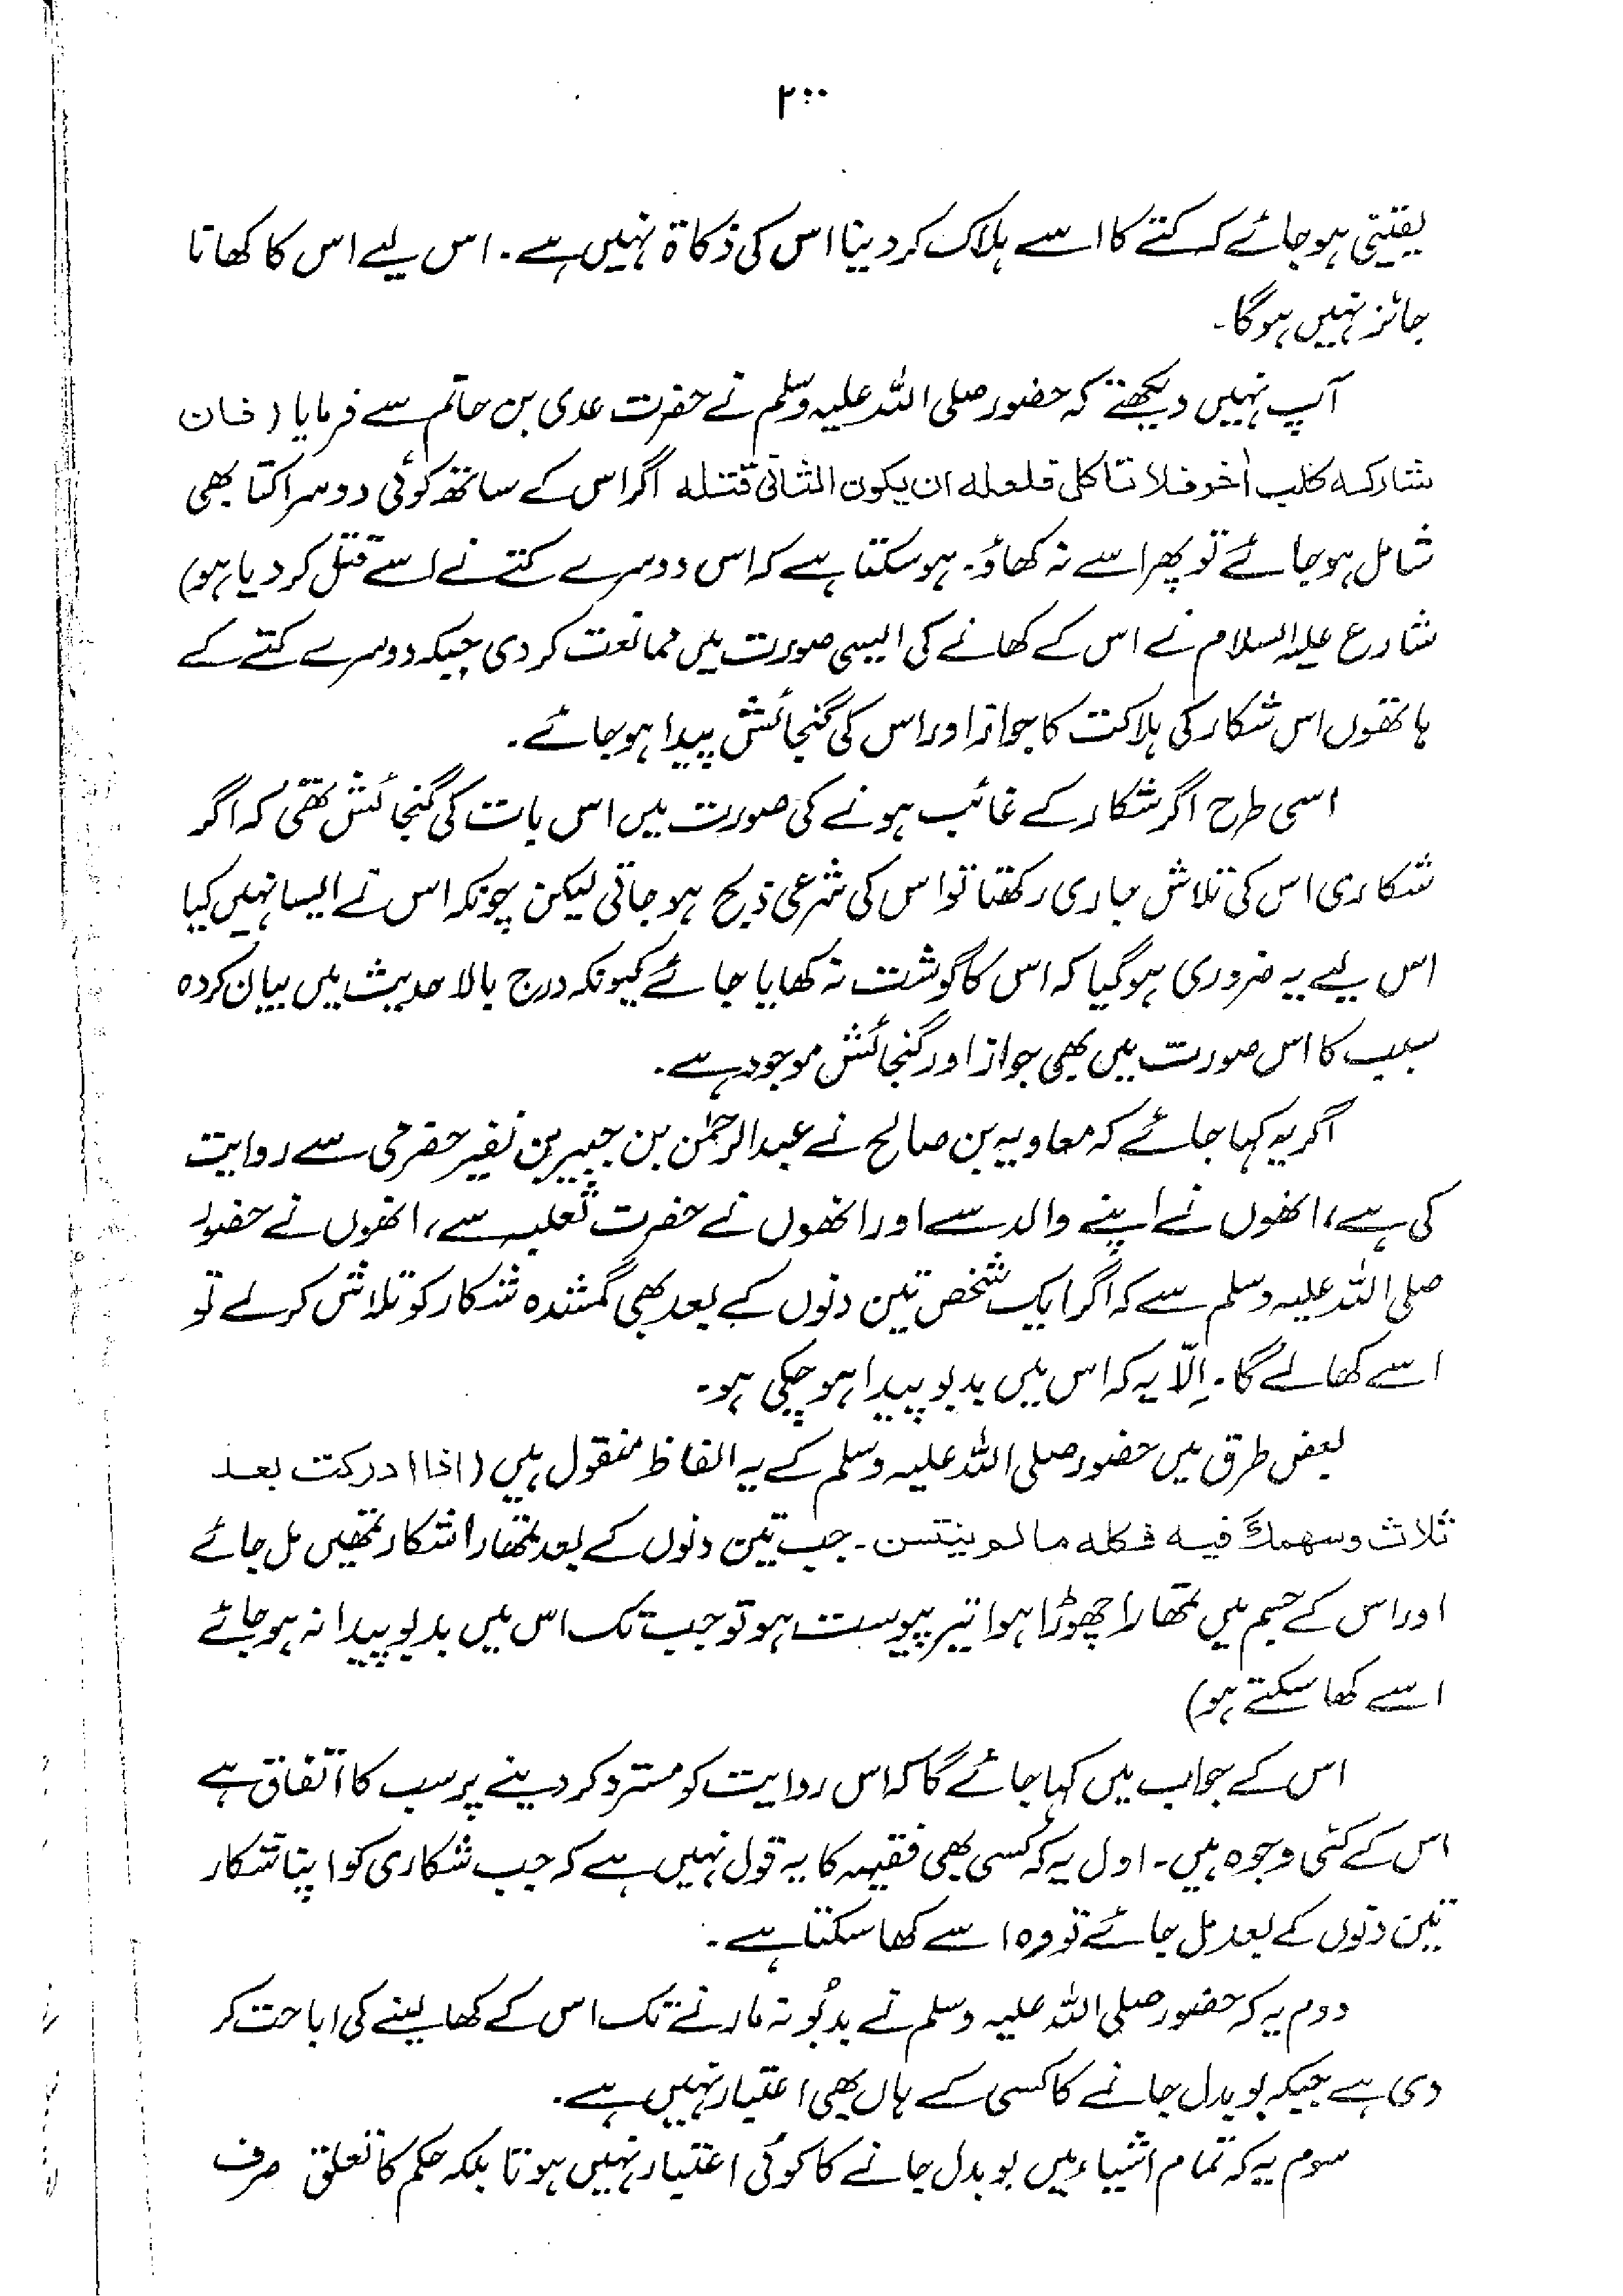 ۲۰۰
یقینی ہو جائے کہ کتے کا اسے ہلاک کر دینا اس کی ذکاۃ نہیں ہے۔ اس لیے اس کا کھانا
جائز نہیں ہوگا۔
آپ نہیں دیکھتے کہ حضور صلی اللہ علیہ وسلم نے حضرت عدی بن حاتم سے فرمایا (فان
شارکہ کلب اٰخر فلا تاکل فلعلہ ان یکون الثانی قتلہ اگر اس کے ساتھ کوئی دوسرا کتا بھی
شامل ہو جائے تو پھر اسے نہ کھاؤ۔ ہو سکتا ہے کہ اس دوسرے کتے نے اسے قتل کر دیا ہو)
شارع علیہ السلام نے اس کے کھانے کی ایسی صورت میں ممانعت کر دی جبکہ دوسرے کتے کے
ہاتھوں اس شکار کی ہلاکت کا جواز اور اس کی گنجائش پیدا ہو جائے۔
اسی طرح اگر شکار کے غائب ہونے کی صورت میں اس بات کی گنجائش تھی کہ اگر
شکاری اس کی تلاش جاری رکھتا تو اس کی شرعی ذبح ہو جاتی لیکن چونکہ اس نے ایسا نہیں کیا
اس لیے یہ ضروری ہو گیا کہ اس کا گوشت نہ کھایا جائے کیونکہ درج بالا حدیث میں بیان کردہ
سبب کا اس صورت میں بھی جواز اور گنجائش موجود ہے۔
اگر یہ کہا جائے کہ معاویہ بن صالح نے عبدالرحمٰن بن جبیر بن نفیر حضرمی سے روایت
کی ہے، انھوں نے اپنے والد سے اور انھوں نے حضرت ثعلبہ سے، انھوں نے حضور
صلی اللہ علیہ وسلم سے کہ اگر ایک شخص تین دنوں کے بعد بھی گمشدہ شکار کو تلاش کر لے تو
اسے کھا لے گا۔ اِلّا یہ کہ اس میں بدبو پیدا ہو چکی ہو۔
بعض طرق میں حضور صلی اللہ علیہ وسلم کے یہ الفاظ منقول ہیں (اذا ادرکت بعد
ثلاث وسھمک فیہ فکلہ مالم ینتن۔ جب تین دنوں کے بعد تمھارا شکار تمھیں مل جائے
اور اس کے جسم میں تمھارا چھوڑا ہوا تیر پیوست ہو تو جب تک اس میں بدبو پیدا نہ ہو جائے
اسے کھا سکتے ہو)
اس کے جواب میں کہا جائے گا کہ اس روایت کو مسترد کر دینے پر سب کا اتفاق ہے
اس کے کئی وجوہ ہیں۔ اول یہ کہ کسی بھی فقیہہ کا یہ قول نہیں ہے کہ جب شکاری کو اپنا شکار
تین دنوں کے بعد مل جائے تو وہ اسے کھا سکتا ہے۔
دوم یہ کہ حضور صلی اللہ علیہ وسلم نے بدبُو نہ مارنے تک اس کے کھا لینے کی اباحت کر
دی ہے جبکہ بو بدل جانے کا کسی کے ہاں بھی اعتبار نہیں ہے۔
سوم یہ کہ تمام اشیاء میں بو بدل جانے کا کوئی اعتبار نہیں ہوتا بلکہ حکم کا تعلق صرف